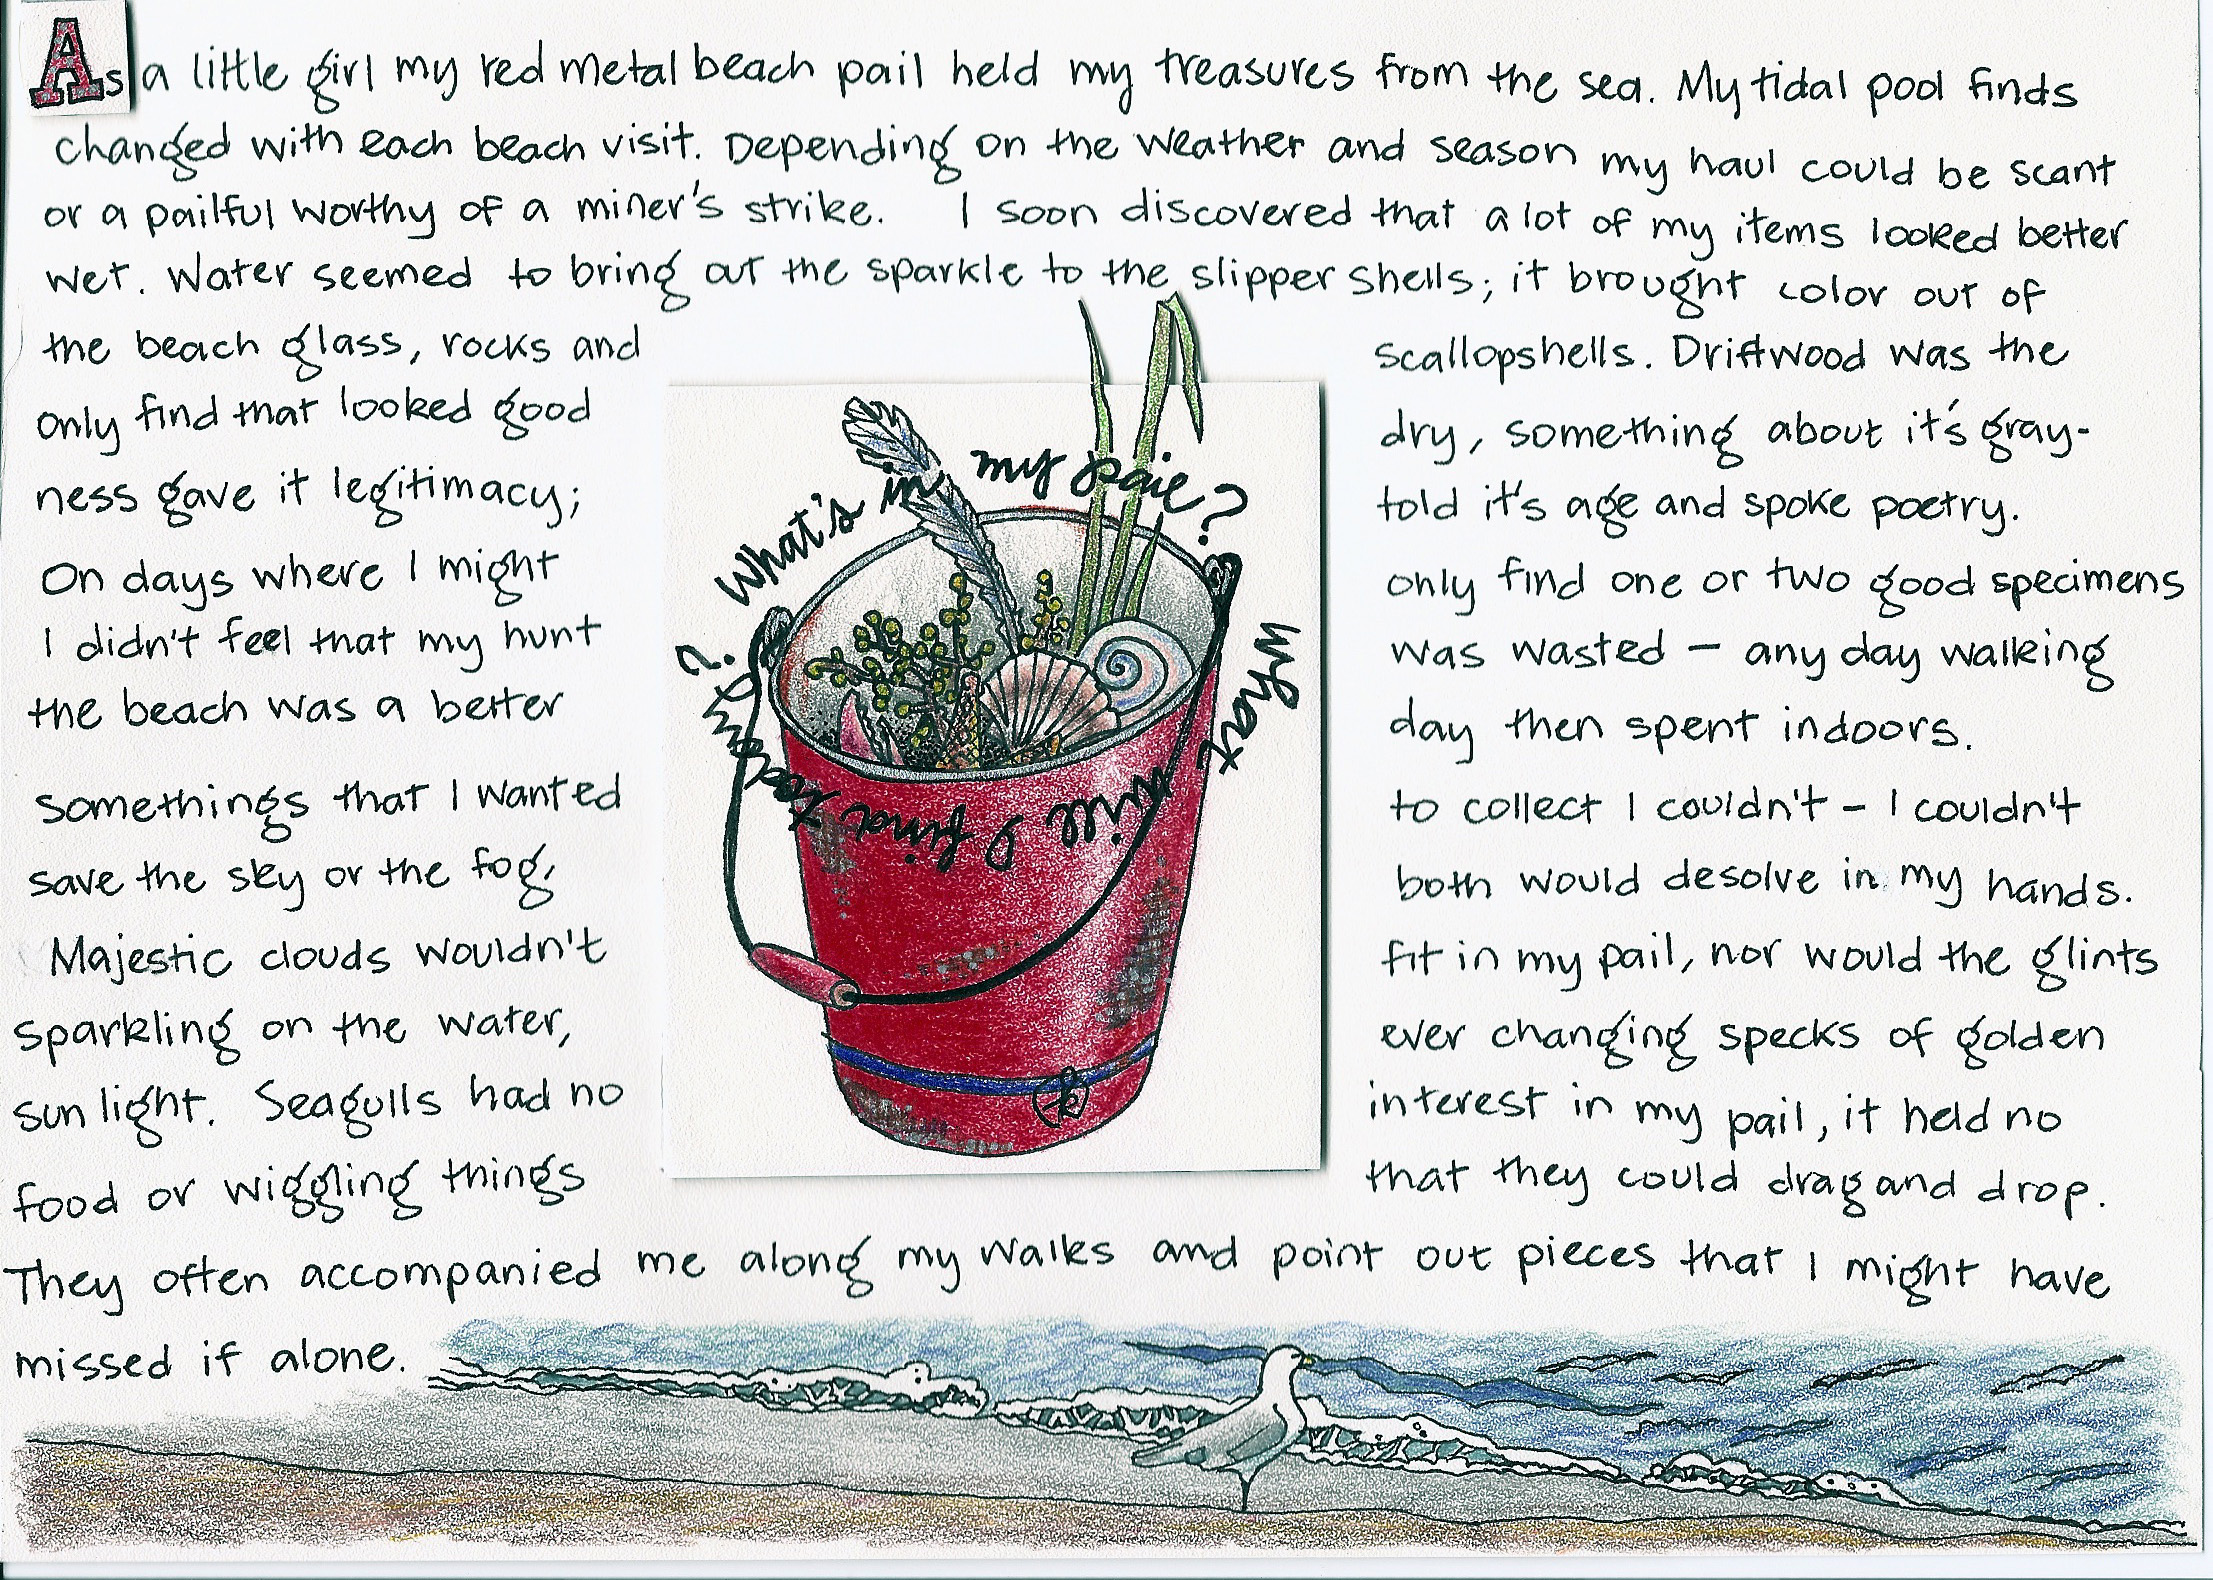 As a little girl my red metal beach pail held my treasures from the sea. My tidal pool finds
changed with each beach visit. Depending on the weather and season my haul could be scant
or a pailful worthy of a miner's strike. I soon discovered that a lot of my items looked better
wet. Water seemed to bring out the sparkle to the slipper shells; it brought color out of
the beach glass, rocks and scallopshells. Driftwood was the
only find that looked good dry, something about it's gray-
ness gave it legitimacy; told it's age and spoke poetry.
On days where I might only find one or two good specimens
I didn't feel that my hunt was wasted — any day walking
the beach was a better day then spent indoors.
Somethings that I wanted to collect I couldn't - I couldn't
save the sky or the fog, both would desolve in my hands.
Majestic clouds wouldn't fit in my pail, nor would the glints
sparkling on the water, ever changing specks of golden
sun light. Seagulls had no interest in my pail, it held no
food or wiggling things that they could drag and drop.
They often accompanied me along my walks and point out pieces that I might have
missed if alone.
What's in my pail?
What will I find today?
k